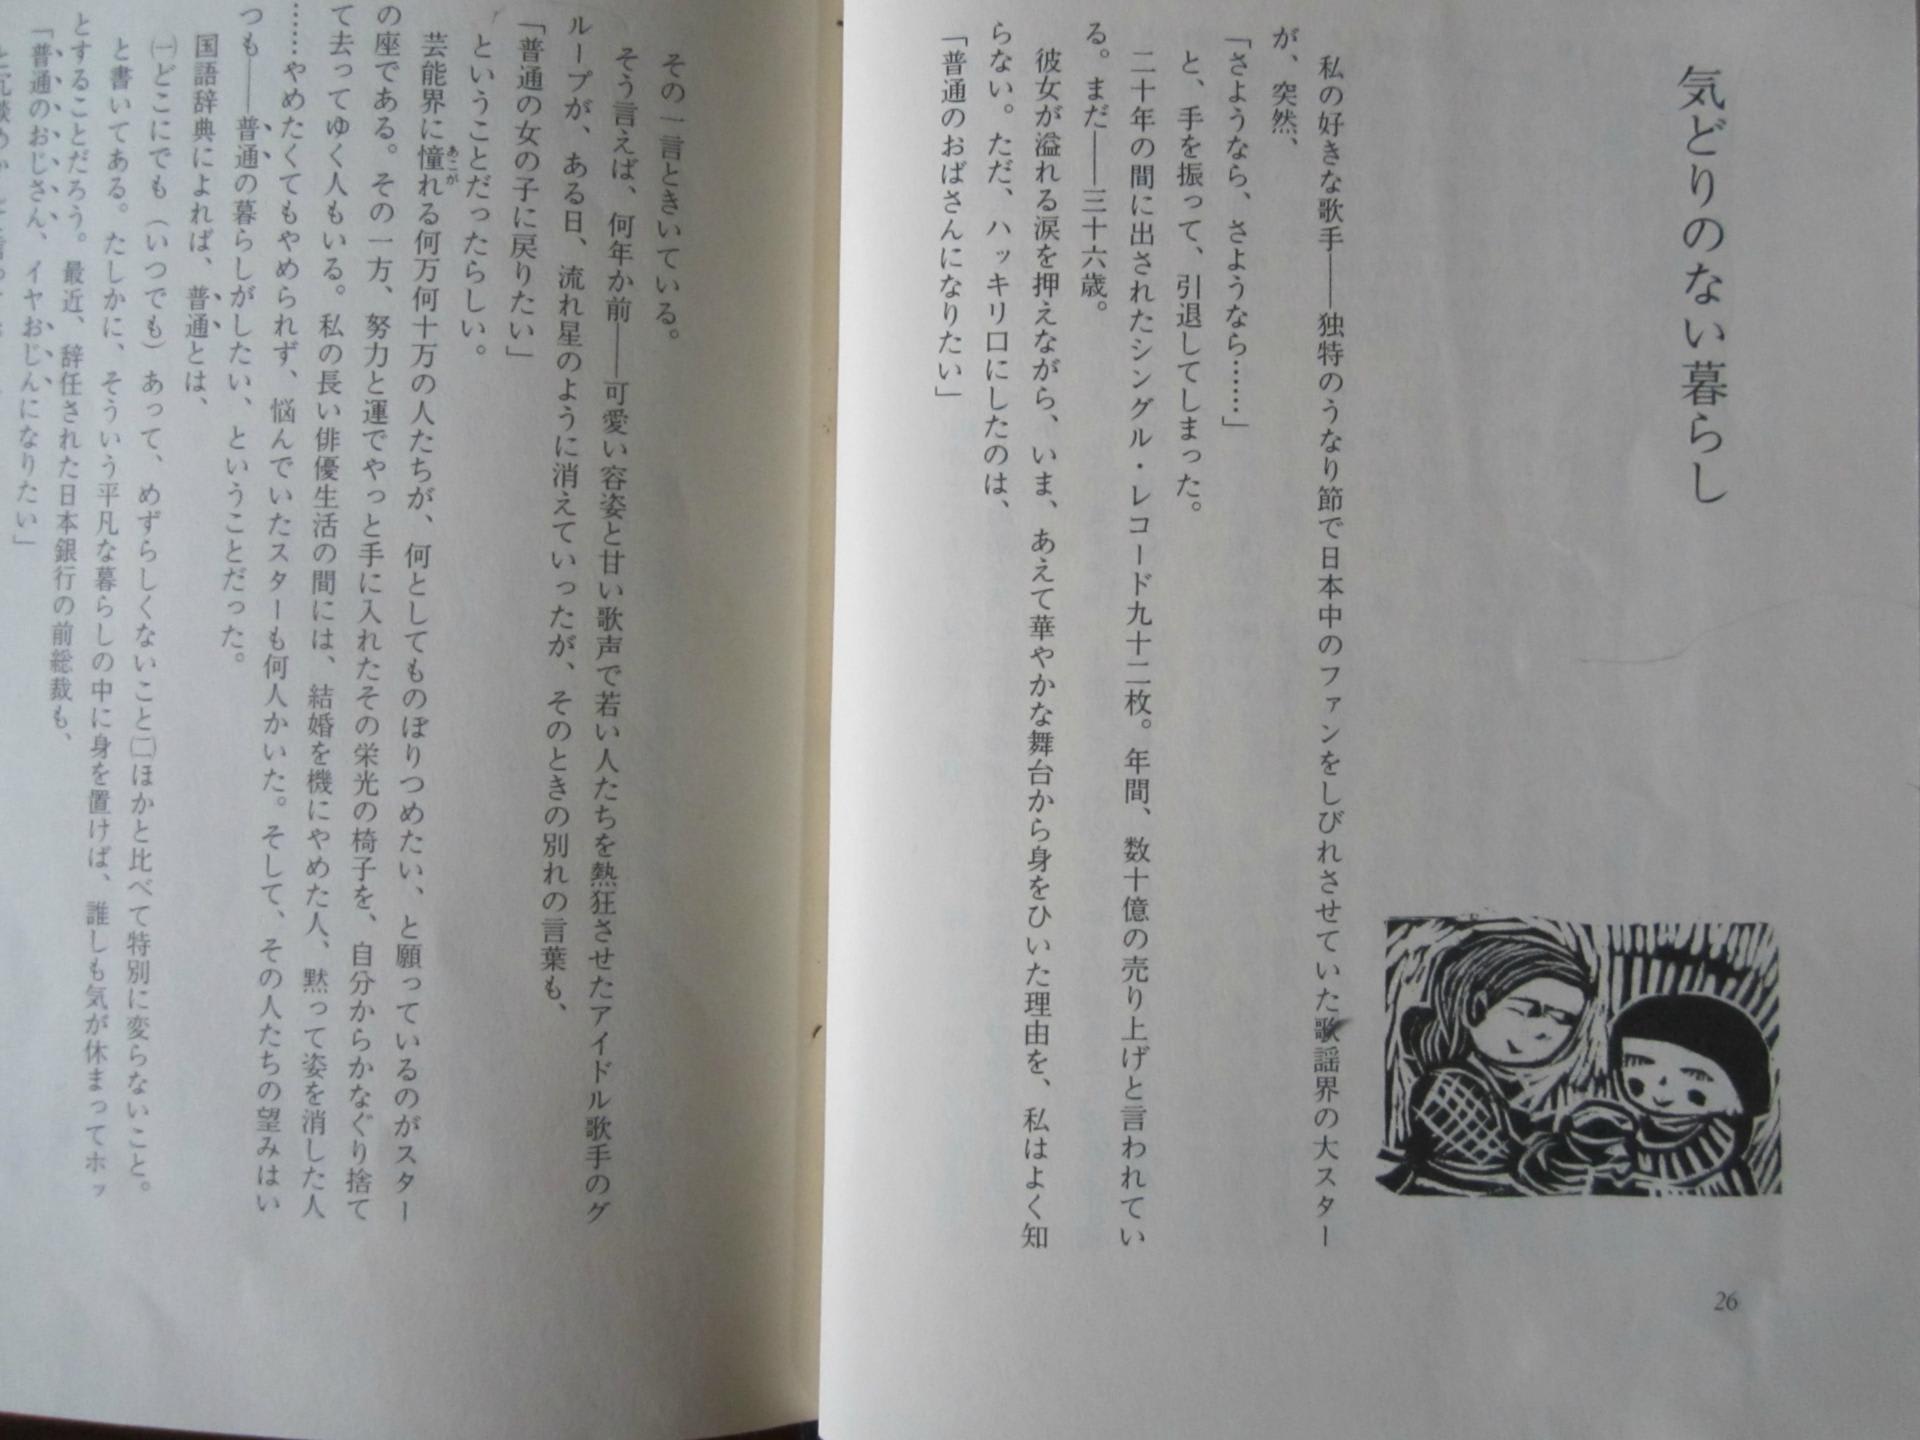 気どりのない暮らし
私の好きな歌手――独特のうなり節で日本中のファンをしびれさせていた歌謡界の大スター
が、突然、
「さようなら、さようなら……」
と、手を振って、引退してしまった。
二十年の間に出されたシングル・レコード九十二枚。年間、数十億の売り上げと言われてい
る。まだ――三十六歳。
彼女が溢れる涙を押えながら、いま、あえて華やかな舞台から身をひいた理由を、私はよく知
らない。ただ、ハッキリ口にしたのは、
「普通のおばさんになりたい」
26
その一言ときいている。
そう言えば、何年か前――可愛い容姿と甘い歌声で若い人たちを熱狂させたアイドル歌手のグ
ループが、ある日、流れ星のように消えていったが、そのときの別れの言葉も、
「普通の女の子に戻りたい」
ということだったらしい。
芸能界に憧れる何万何十万の人たちが、何としてものぼりつめたい、と願っているのがスター
あこが
の座である。その一方、努力と運でやっと手に入れたその栄光の椅子を、自分からかなぐり捨て
て去ってゆく人もいる。私の長い俳優生活の間には、結婚を機にやめた人、黙って姿を消した人
……やめたくてもやめられず、悩んでいたスターも何人かいた。そして、その人たちの望みはい
つも――普通の暮らしがしたい、ということだった。
国語辞典によれば、普通とは、
㈠どこにでも（いつでも）あって、めずらしくないこと㈡ほかと比べて特別に変らないこと。
と書いてある。たしかに、そういう平凡な暮らしの中に身を置けば、誰しも気が休まってホッ
とすることだろう。最近、辞任された日本銀行の前総裁も、
「普通のおじさん、イヤおじんになりたい」